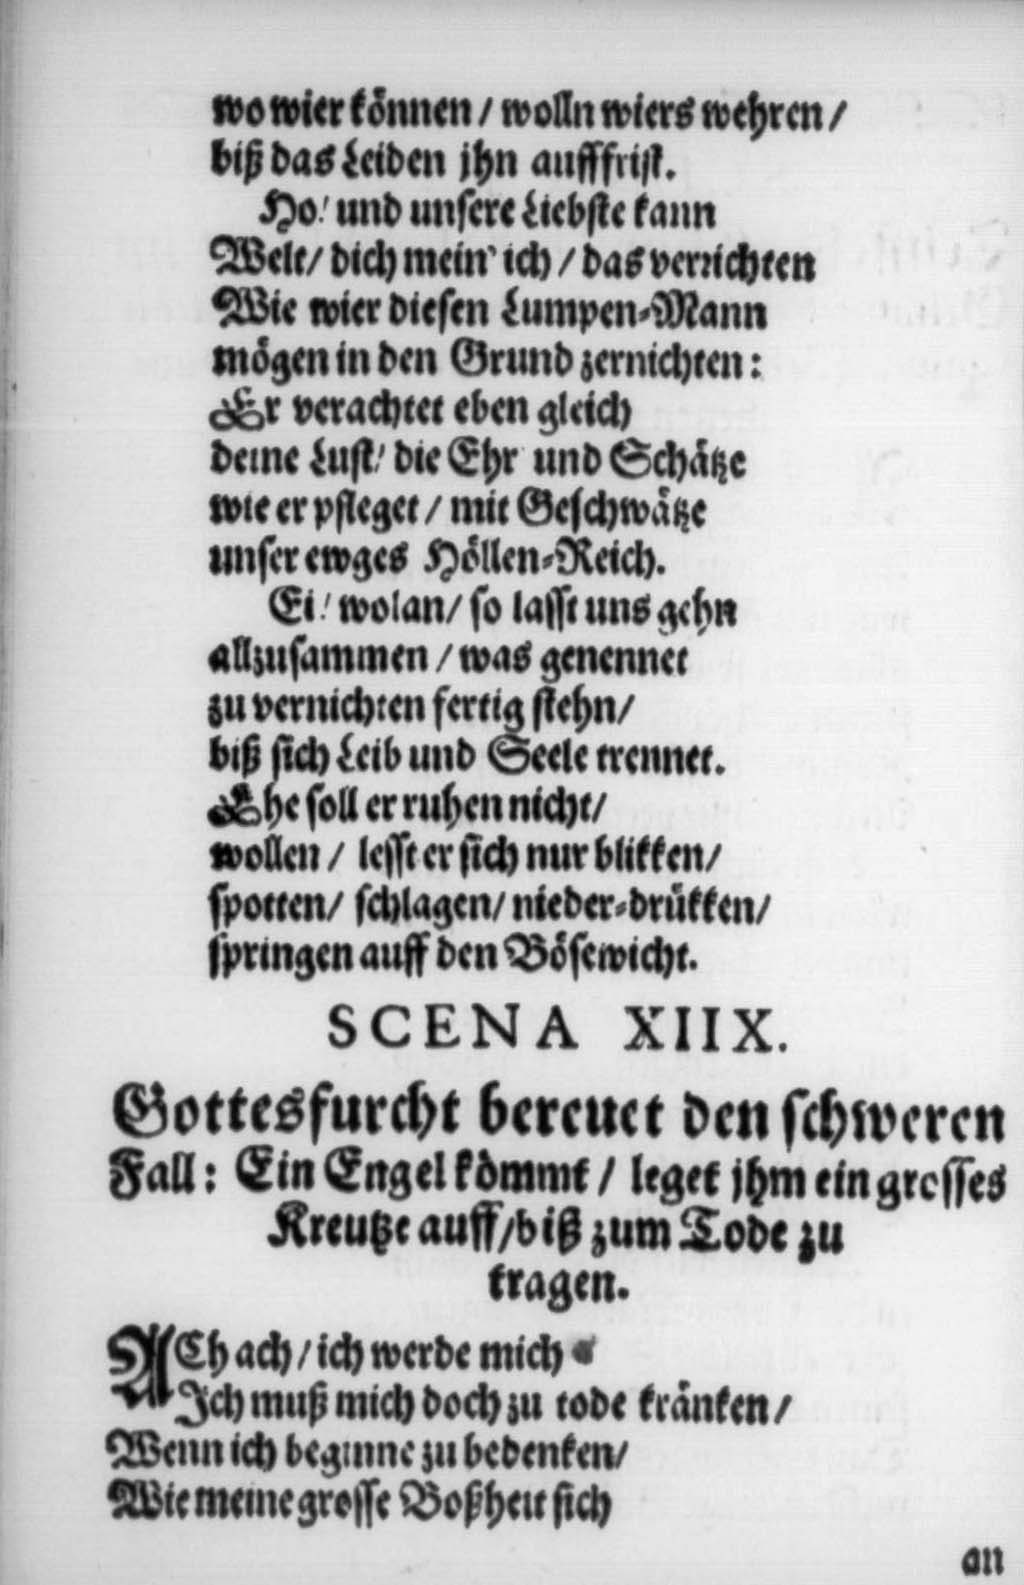 wo wier können / wolln wiers wehren /
biß das Leiden jhn aufffrist.
Ho! und unsere Liebste kann
Welt/ dich mein' ich / das verrichten
Wie wier diesen Lumpen-Mann
mögen in den Grund zernichten:
Er verachtet eben gleich
deine Lust/ die Ehr und Schätze
wie er pfleget / mit Geschwätze
unser ewges Höllen-Reich.
Ei! wolan/ so lasst uns gehn
allzusammen / was genennet
zu vernichten fertig stehn/
biß sich Leib und Seele trennet.
Ehe soll er ruhen nicht/
wollen / lesst er sich nur blikken/
spotten/ schlagen/ nieder-drükken/
springen auff den Bösewicht.
SCENA XIIX.
Gottesfurcht bereuet den schweren
Fall: Ein Engel kömmt / leget jhm ein grosses
Kreutze auff/biß zum Tode zu
tragen.
ACh ach / ich werde mich
Ich muß mich doch zu tode kränken /
Wenn ich beginne zu bedenken/
Wie meine grosse Boßheit sich
an